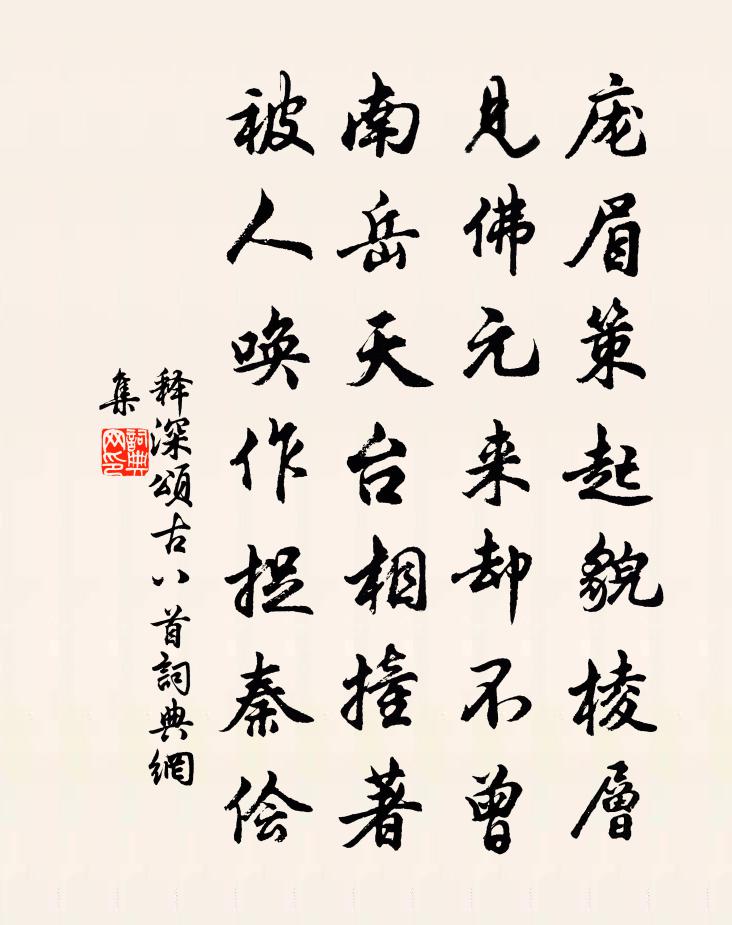 庞眉策起貌棱層
見佛元来却不曾
南岳天台相撞著
被人唤作捉秦侩
释深頌古八首詞典網
集
詞典网印